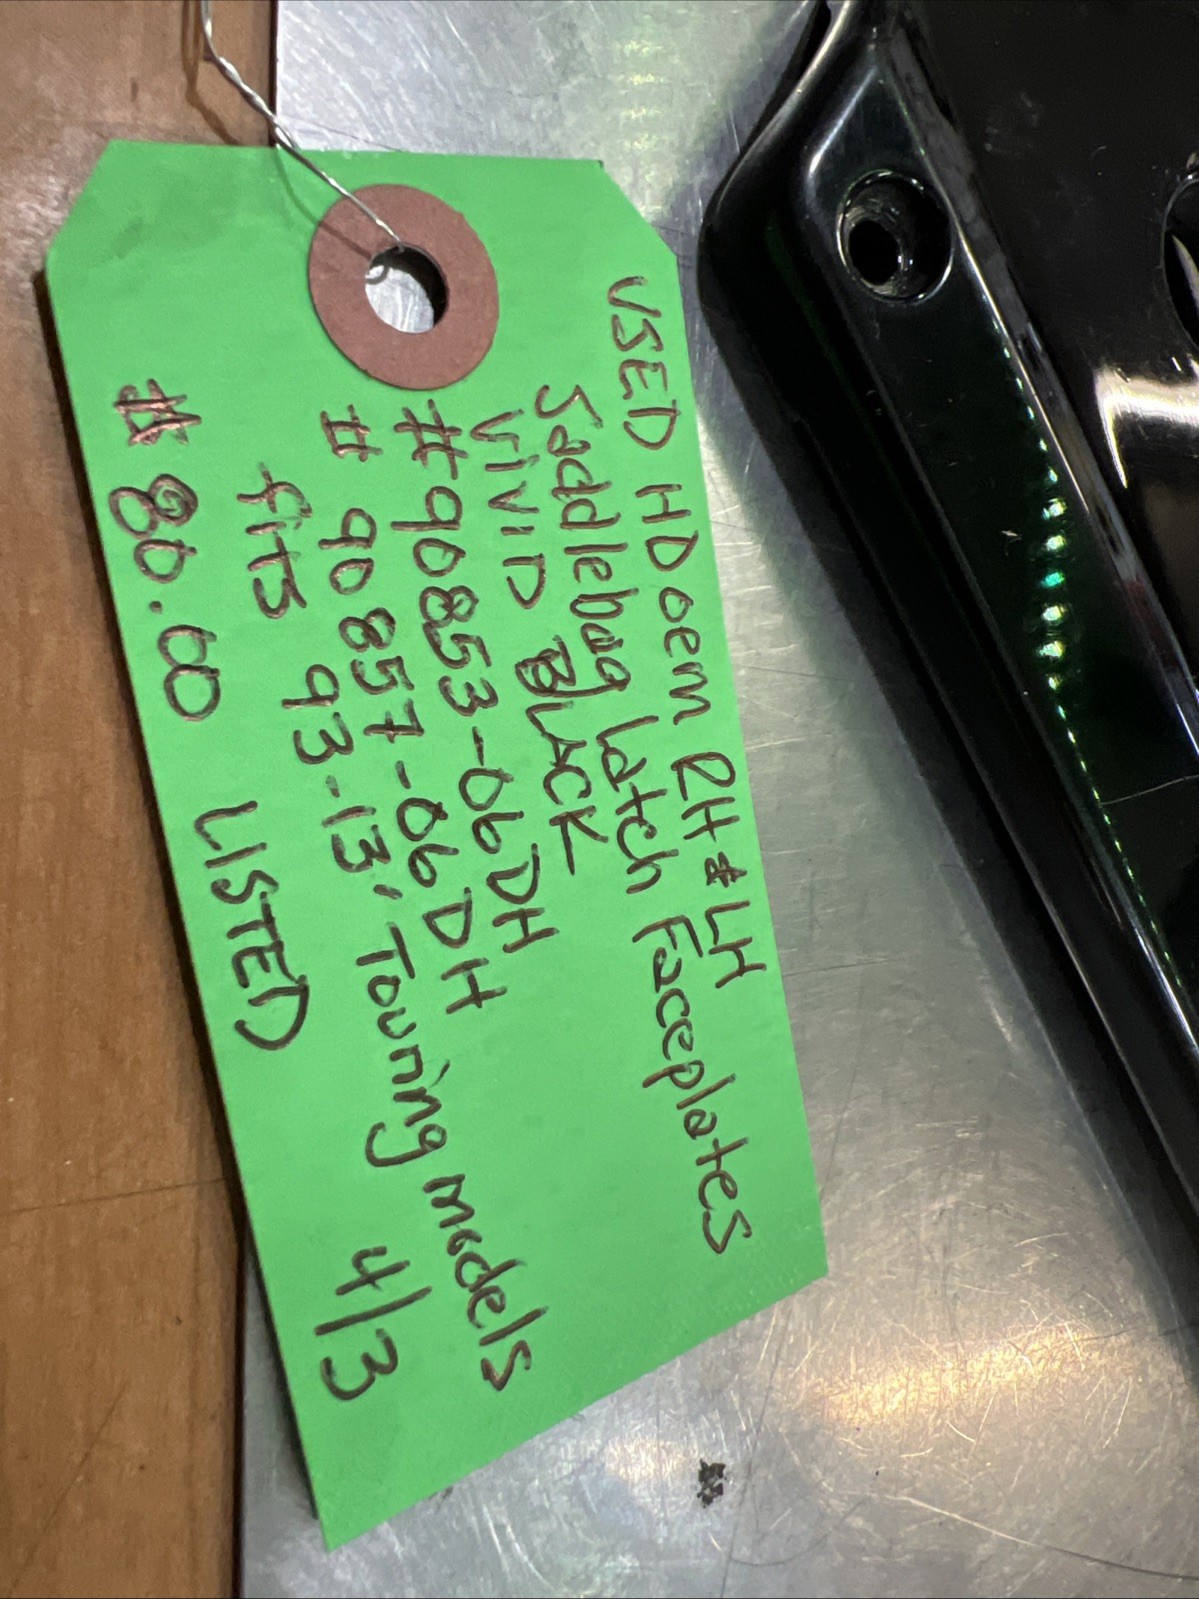 USED HD oem RH & LH
Saddlebag Latch Faceplates
VIVID BLACK
#90853-06DH
# 90857-06DH
fits 93-13' Touring models
$ 80.00 LISTED 4/3